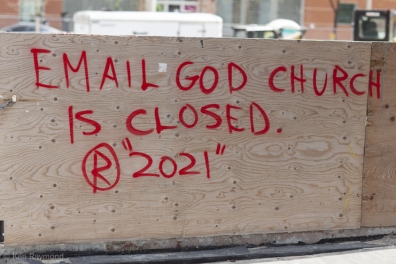 EMAIL GOD CHURCH
IS CLOSED.
® "2021"
Raymond